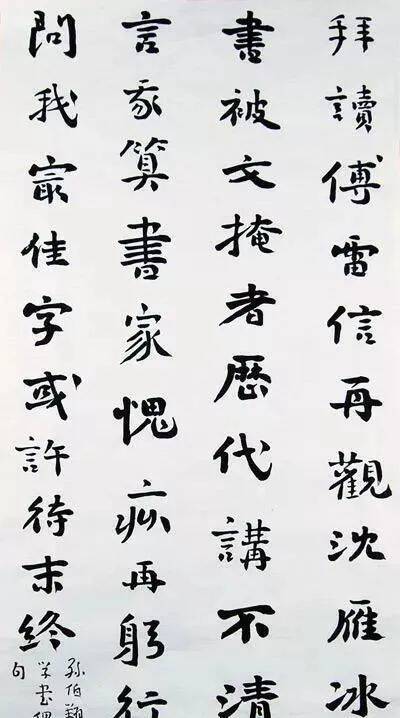 拜讀傅雷信再觀沈雁冰
書被文掩者歷代講不清
言我算書家愧疚再躬行
問我最佳字或許待末終
孫伯翔
学書俚
句